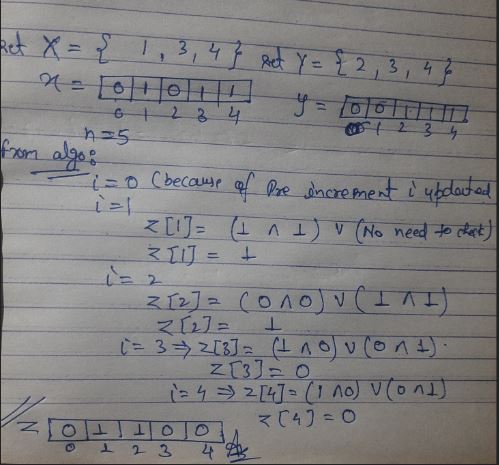 set X = { 1, 3, 4 } set Y = { 2, 3, 4 }
x = 0 1 0 1 1
0 1 2 3 4
y = 0 0 1 1 1
1 2 3 4
n = 5
from algo:
i = 0 (because of Pre increment i updated
i = 1
Z[1] = (1 ∧ 1) ∨ (No need to check)
Z[1] = 1
i = 2
Z[2] = (0 ∧ 0) ∨ (1 ∧ 1)
Z[2] = 1
i = 3 ⇒ Z[3] = (1 ∧ 0) ∨ (0 ∧ 1).
Z[3] = 0
i = 4 ⇒ Z[4] = (1 ∧ 0) ∨ (0 ∧ 1)
Z[4] = 0
Z 0 1 1 0 0
0 1 2 3 4